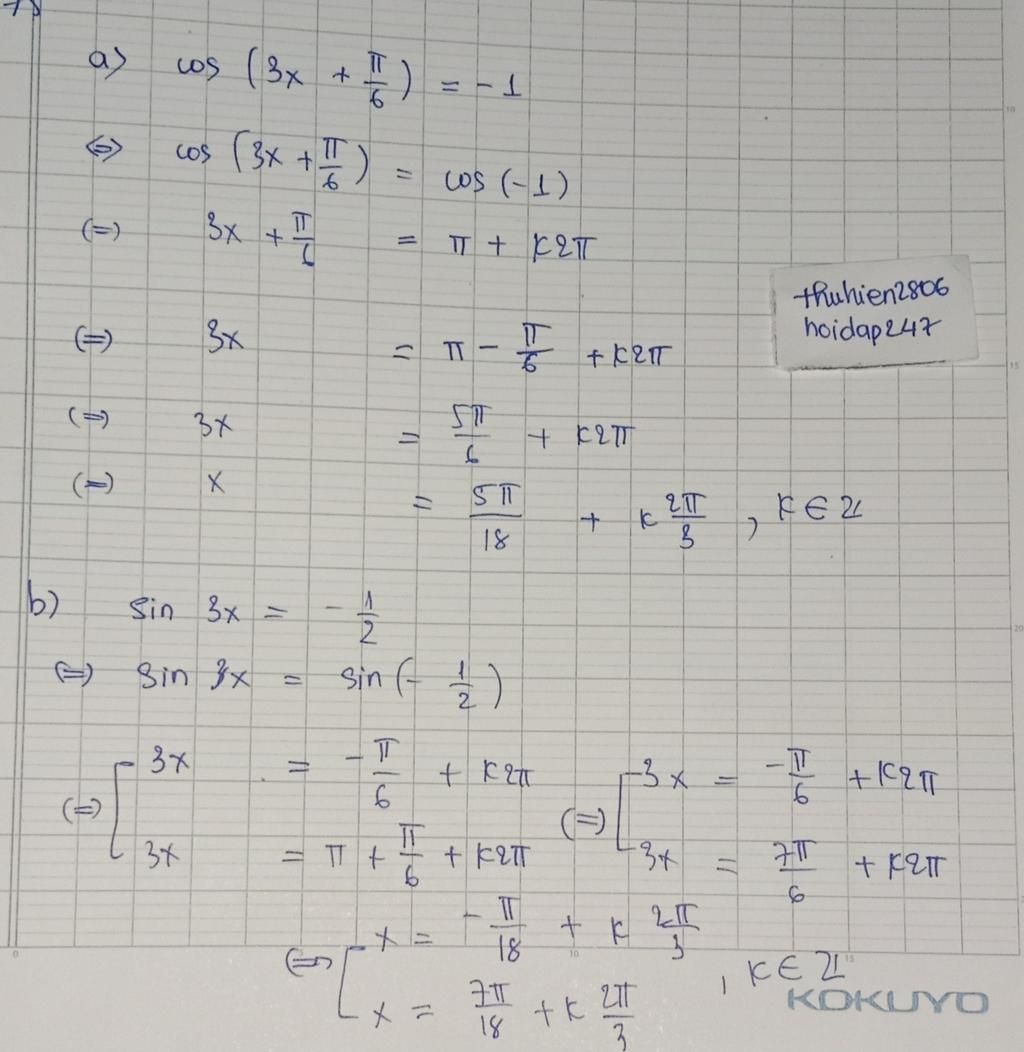 a) cos (3x + π/6) = -1
⇔ cos (3x + π/6) = cos (-1)
(=) 3x + π/6 = π + k2π
(=) 3x = π - π/6 + k2π
(=) 3x = 5π/6 + k2π
(=) x = 5π/18 + k 2π/3 , k ∈ Z
thuhien2806
hoidap247
b) sin 3x = -1/2
(=) sin 3x = sin (- 1/2)
(=) [ 3x = -π/6 + k2π (=) [ 3x = -π/6 + k2π
3x = π + π/6 + k2π 3x = 7π/6 + k2π
(=) [ x = -π/18 + k 2π/3
x = 7π/18 + k 2π/3 , k ∈ Z
KOKUYO